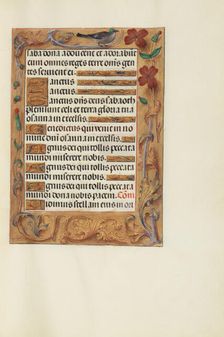 saba dona adorient et adorabūt
eum omnes reges terre om̄s gen
tes servient ei
Sanctus
Sanctus
Sanctus dn̄s deus sabaoth
pleni sunt celi et terra gloria tua
osanna in excelsis
Benedictus qui venit in no
mine domini osanna in excelsis
Agnus dei qui tollis peccata
mundi miserere nobis
Agnus dei qui tollis peccata
mundi miserere nobis
Agnus dei qui tollis peccata
mundi dona nobis pacem Com̄
stellam eius in ori